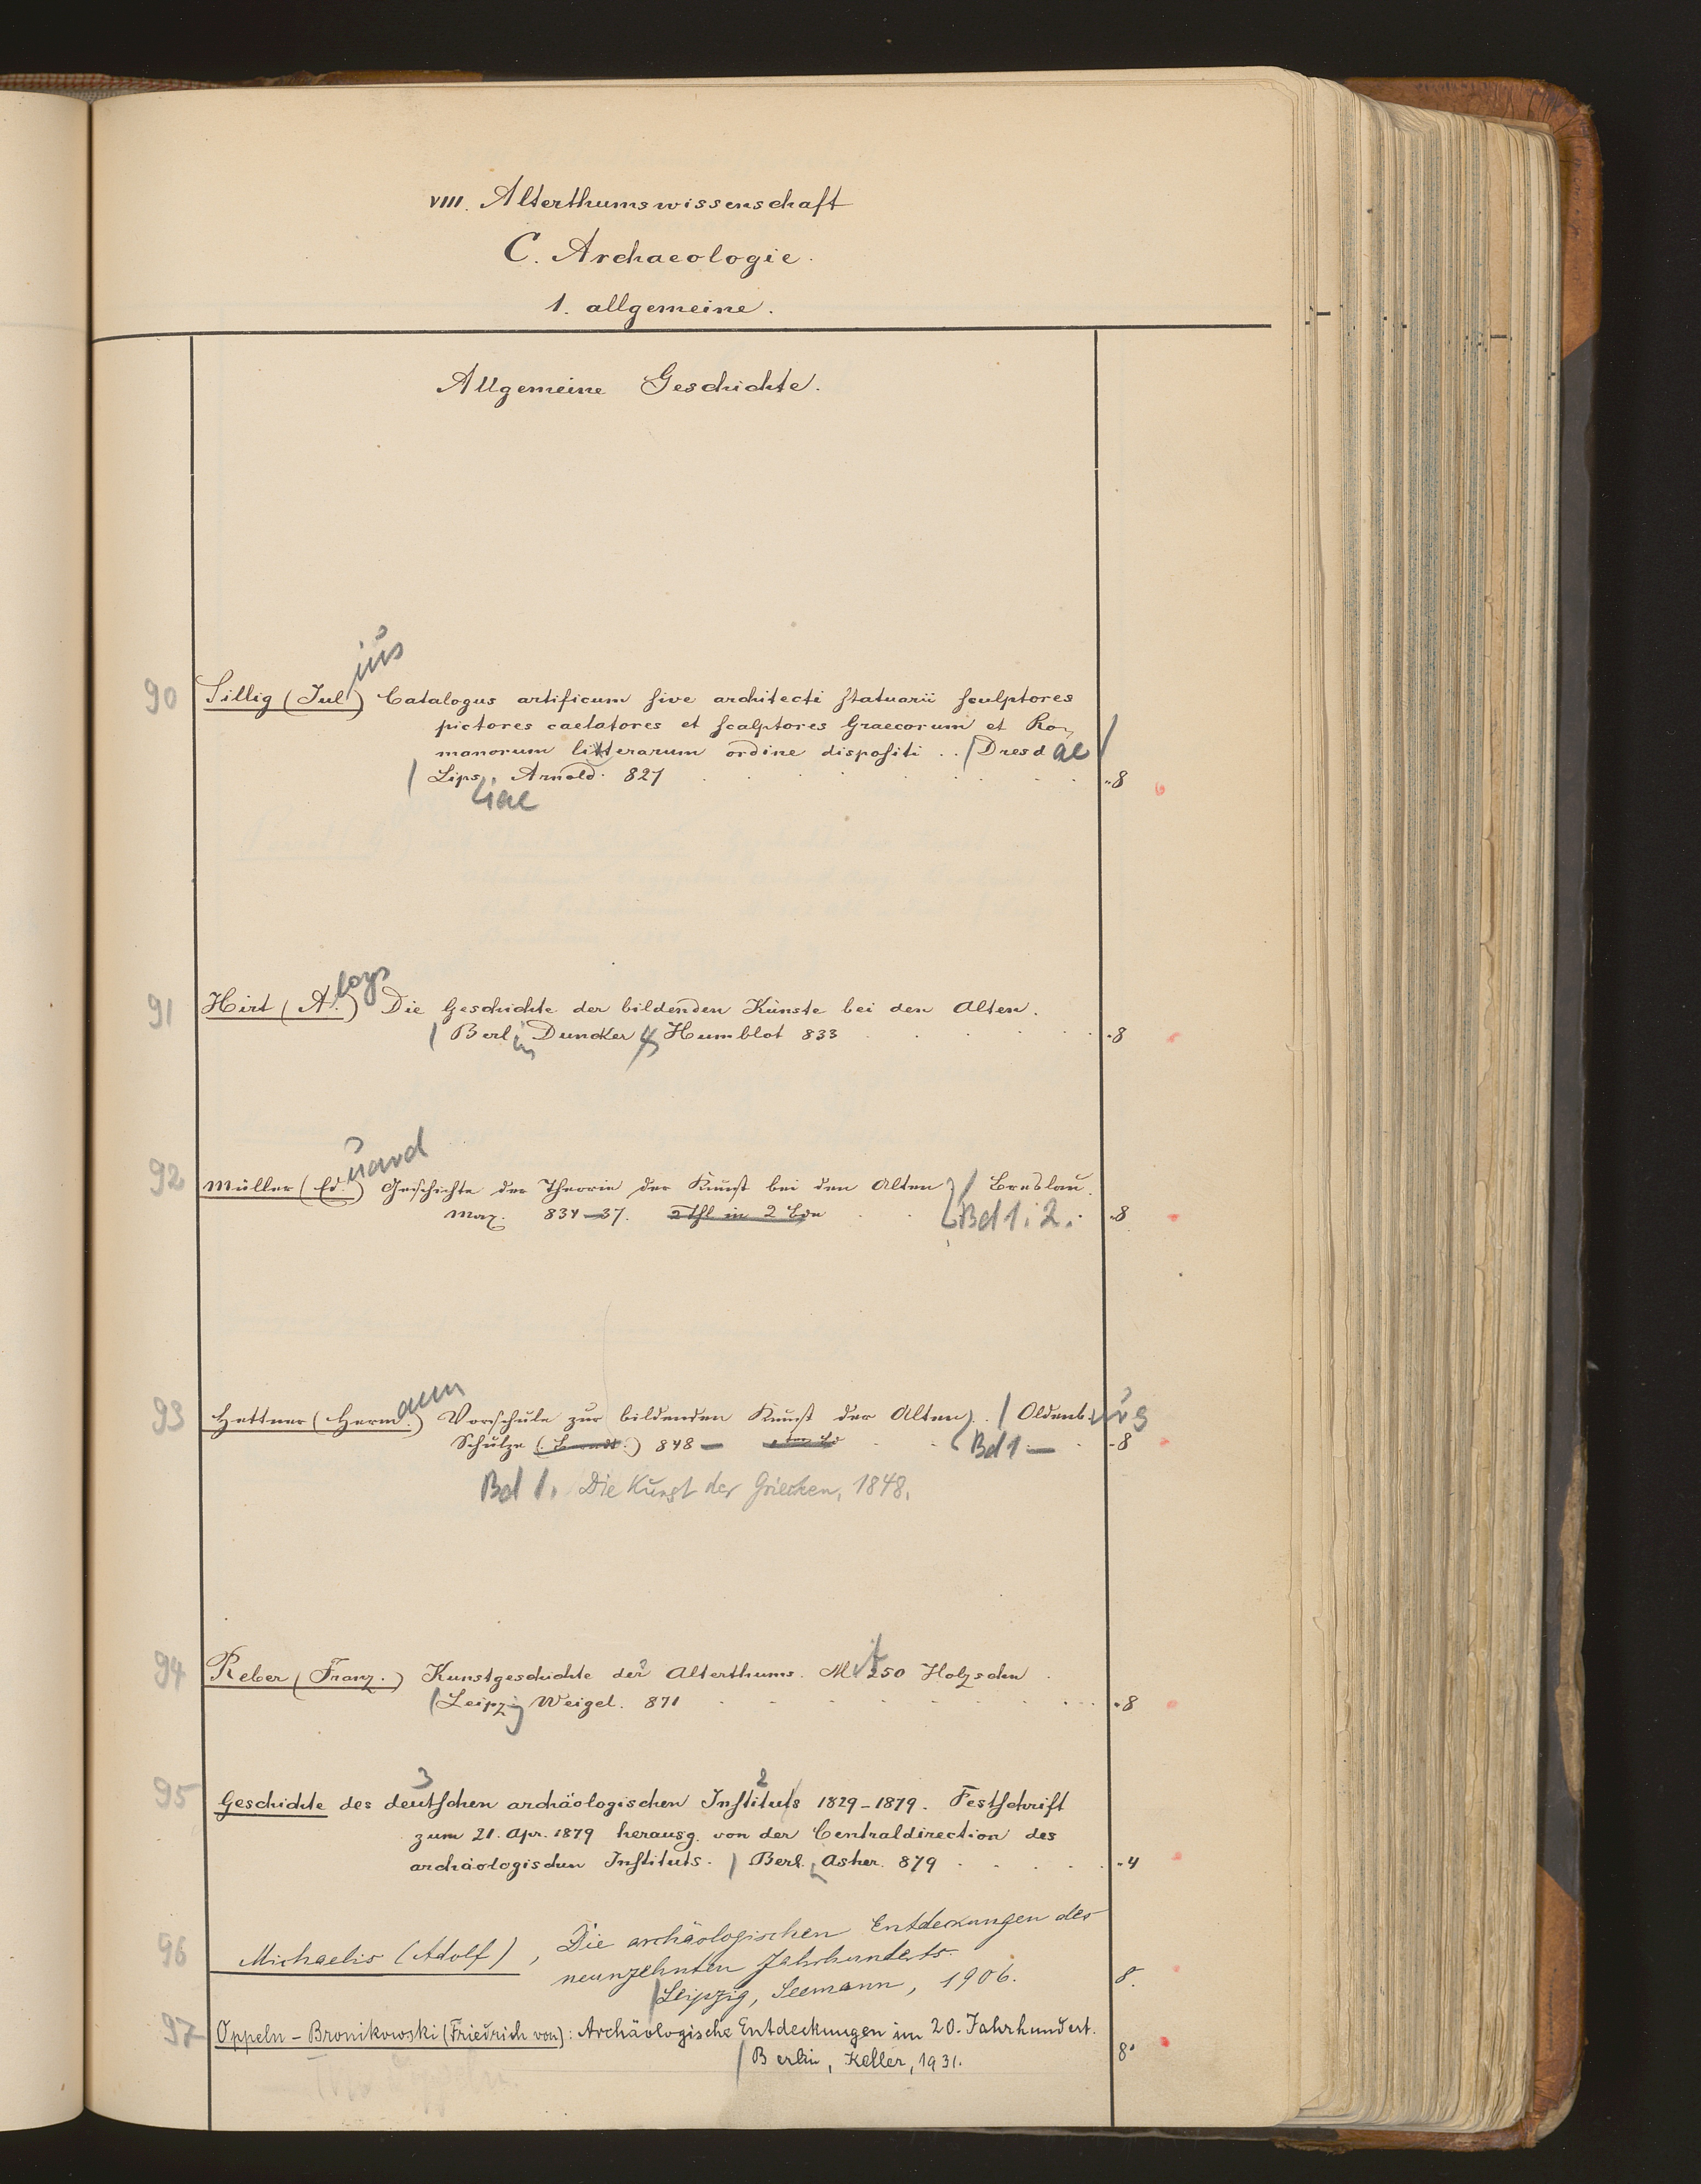 VIII. Alterthumswissenschaft
C. Archaeologie.
1. allgemeine.
Allgemeine Geschichte.
ius
90 Sillig (Jul.) Catalogus artificum sive architecti statuarii sculptores
pictores caelatores et scalptores Graecorum et Ro-
manorum litterarum ordine dispositi .. / Dresdae /
/ Lips. Arnold. 827 . . . . . . -8
siae
loys
91 Hirt (A.) Die Geschichte der bildenden Künste bei den Alten.
/ Berlin, Duncker & Humblot 833 . . . . -8
uard
92 Müller (Ed.) Geschichte der Theorie der Kunst bei den Alten / Breslau.
Max. 834-37. 2 Thl in 2 Bdn . . Bd 1. 2. -8
ann
93 Hettner (Herm.) Vorschule zur bildenden Kunst der Alten. / Oldenburg
Schulze 848 — . . Bd 1 — -8
Bd 1. Die Kunst der Griechen, 1848.
94 Reber (Franz.) Kunstgeschichte des Alterthums. Mit 250 Holzschn.
/ Leipzig Weigel. 871 . . . . . . -8
3 2
95 Geschichte des deutschen archäologischen Instituts 1829-1879. Festschrift
zum 21. Apr. 1879 herausg. von der Centraldirection des
archäologischen Instituts. / Berl., Asher. 879 . . . . -4
96 Michaelis (Adolf), Die archäologischen Entdeckungen des
neunzehnten Jahrhunderts.
/ Leipzig, Seemann, 1906. 8.
97 Oppeln-Bronikowski (Friedrich von): Archäologische Entdeckungen im 20. Jahrhundert.
/ Berlin, Keller, 1931. 8°